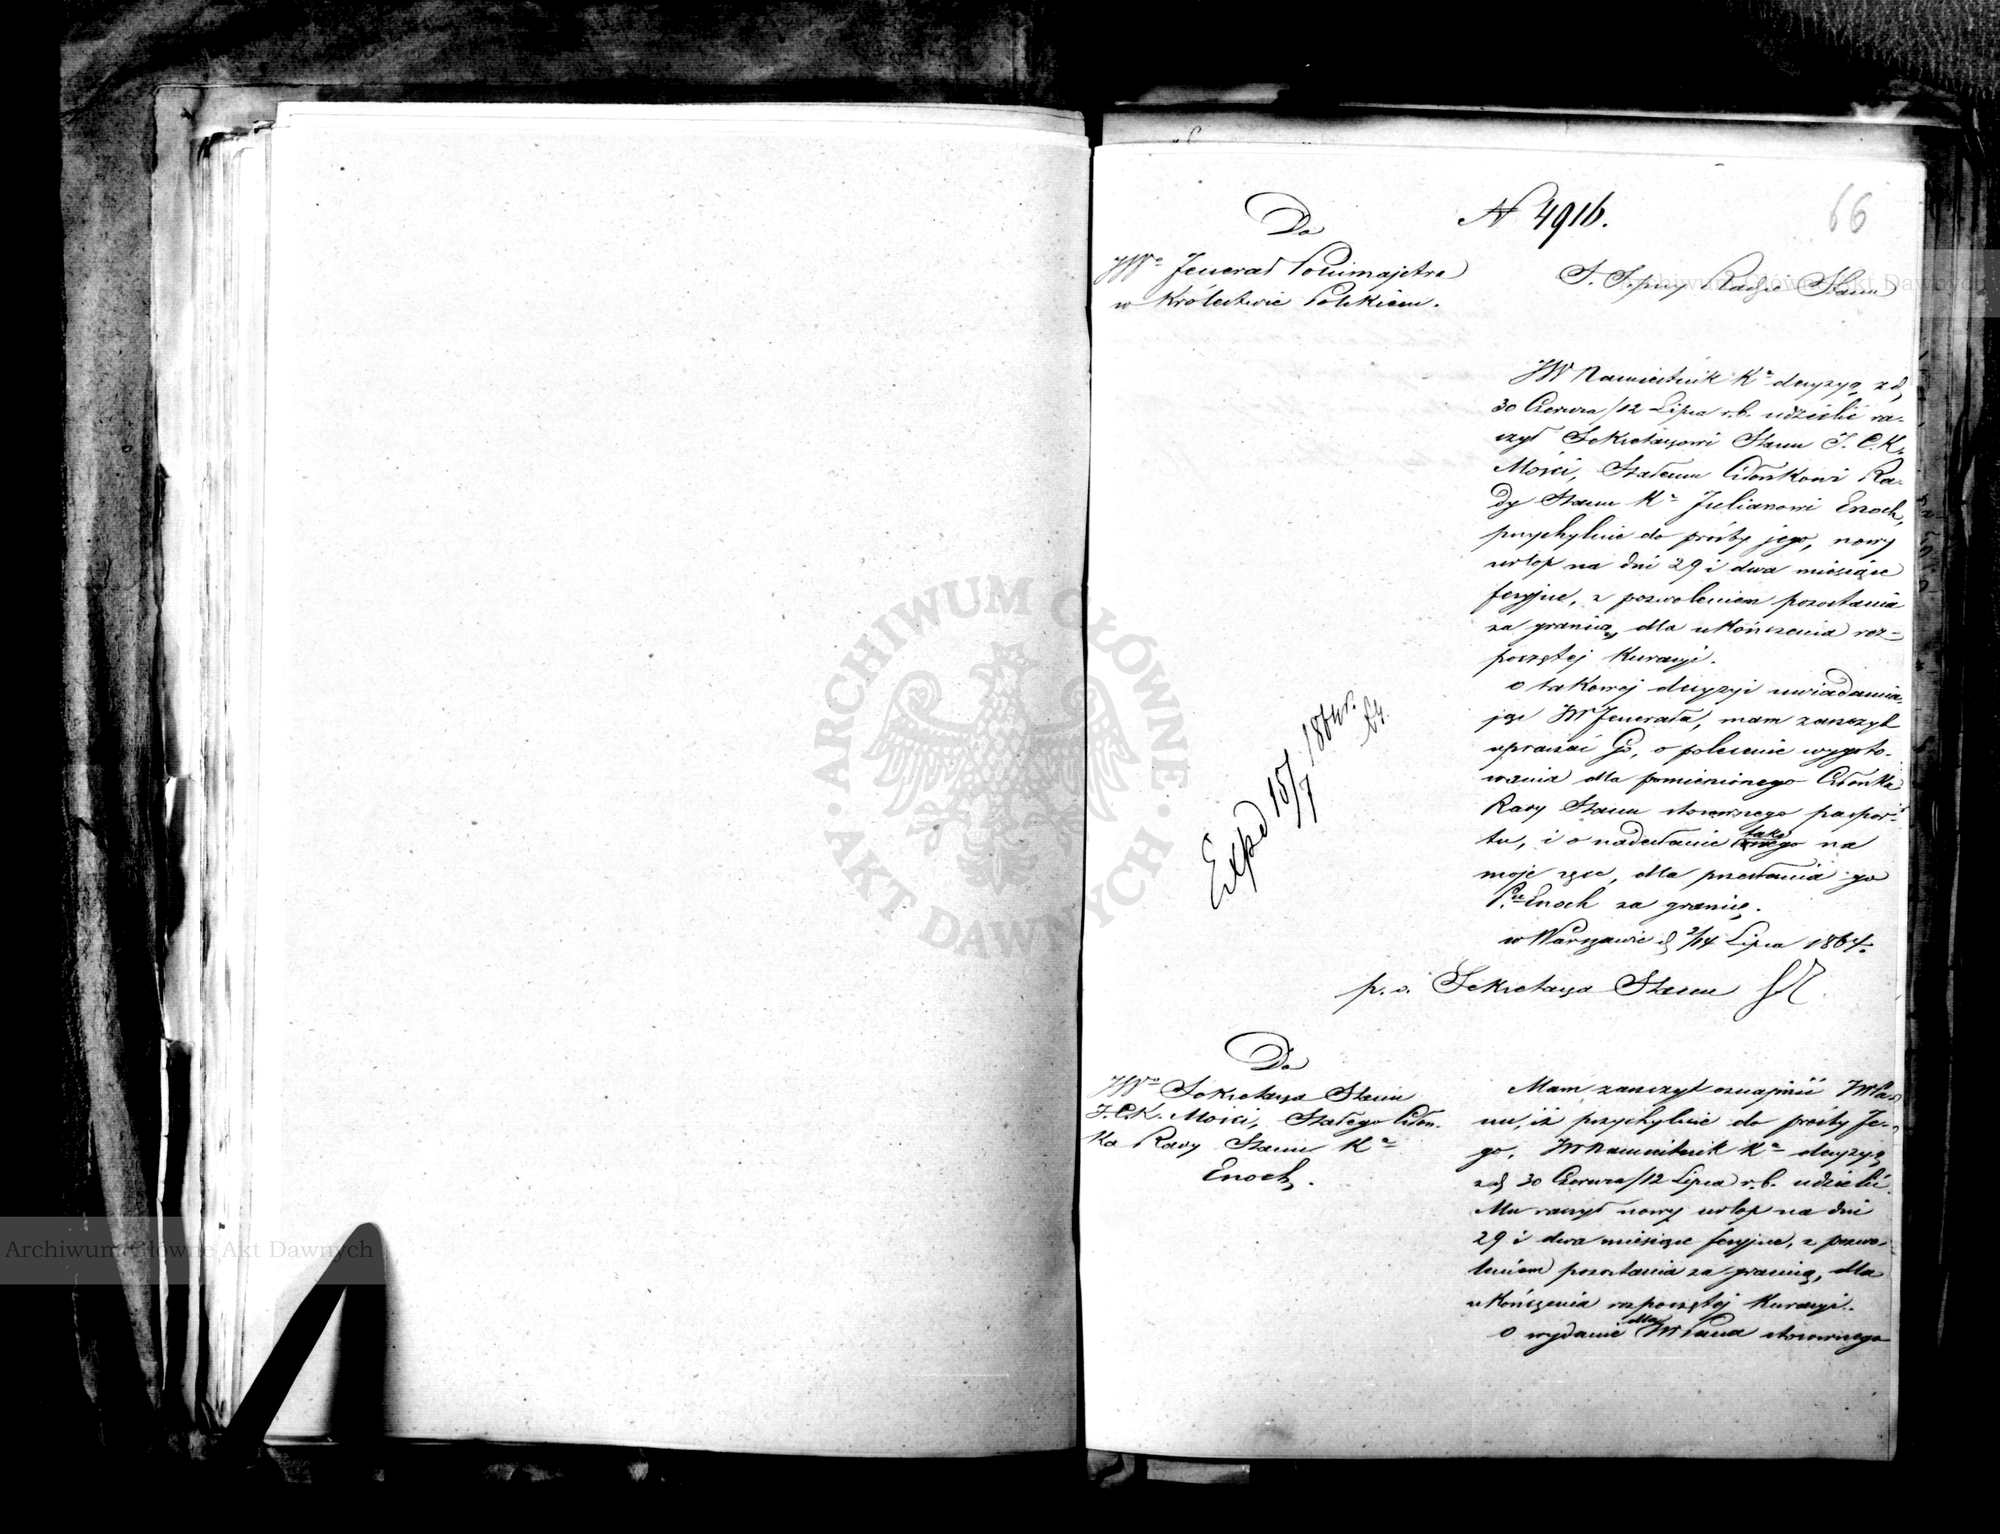 66
N 4916.
Do
JWo Jenerał Policmajstra
w Królestwie Polskiem.
S. S. przy Radzie Stanu
JW Namiestnik Ka decyzyą z d,
30 Czerwca/12 Lipca r.b. udzielić ra-
czył Sekretarzowi Stanu J. C. K.
Mości, Stałemu Członkowi Ra-
dy Stanu Ka Julianowi Enoch,
przychylnie do prośby jego, nowy
urlop na dni 29 i dwa miesiące
feryjne, z pozwoleniem pozostania
za granicą, dla ukończenia roz-
poczętej kuracyi.
O takowej decyzyi uwiadamia-
jąc JW Jenerała, mam zaszczyt
upraszać Go, o polecenie wygoto-
wania dla pomienionego Członka
Rady Stanu stosownego paspor-
tu, i o nadesłanie takowego na
moje ręce, dla przesłania go
P. Enoch za granicę.
w Warszawie d 2/14 Lipca 1864.
p. o. Sekretarza Stanu
Expd 15/7 1864 r.
Do
JWo Sekretarza Stanu
J. C. K. Mości, Stałego Człon-
ka Rady Stanu Ka
Enoch.
Mam zaszczyt oznajmić JWPa-
nu, iż przychylnie do prośby Je-
go, JW Namiestnik Ka decyzyą
z d, 30 Czerwca/12 Lipca r.b. udzielić
Mu raczył nowy urlop na dni
29 i dwa miesiące feryjne, z pozwo-
leniem pozostania za granicą, dla
ukończenia rozpoczętej kuracyi.
O wydanie dla JW Pana stosownego
ARCHIWUM GŁÓWNE AKT DAWNYCH
Archiwum Główne Akt Dawnych
Archiwum Główne Akt Dawnych